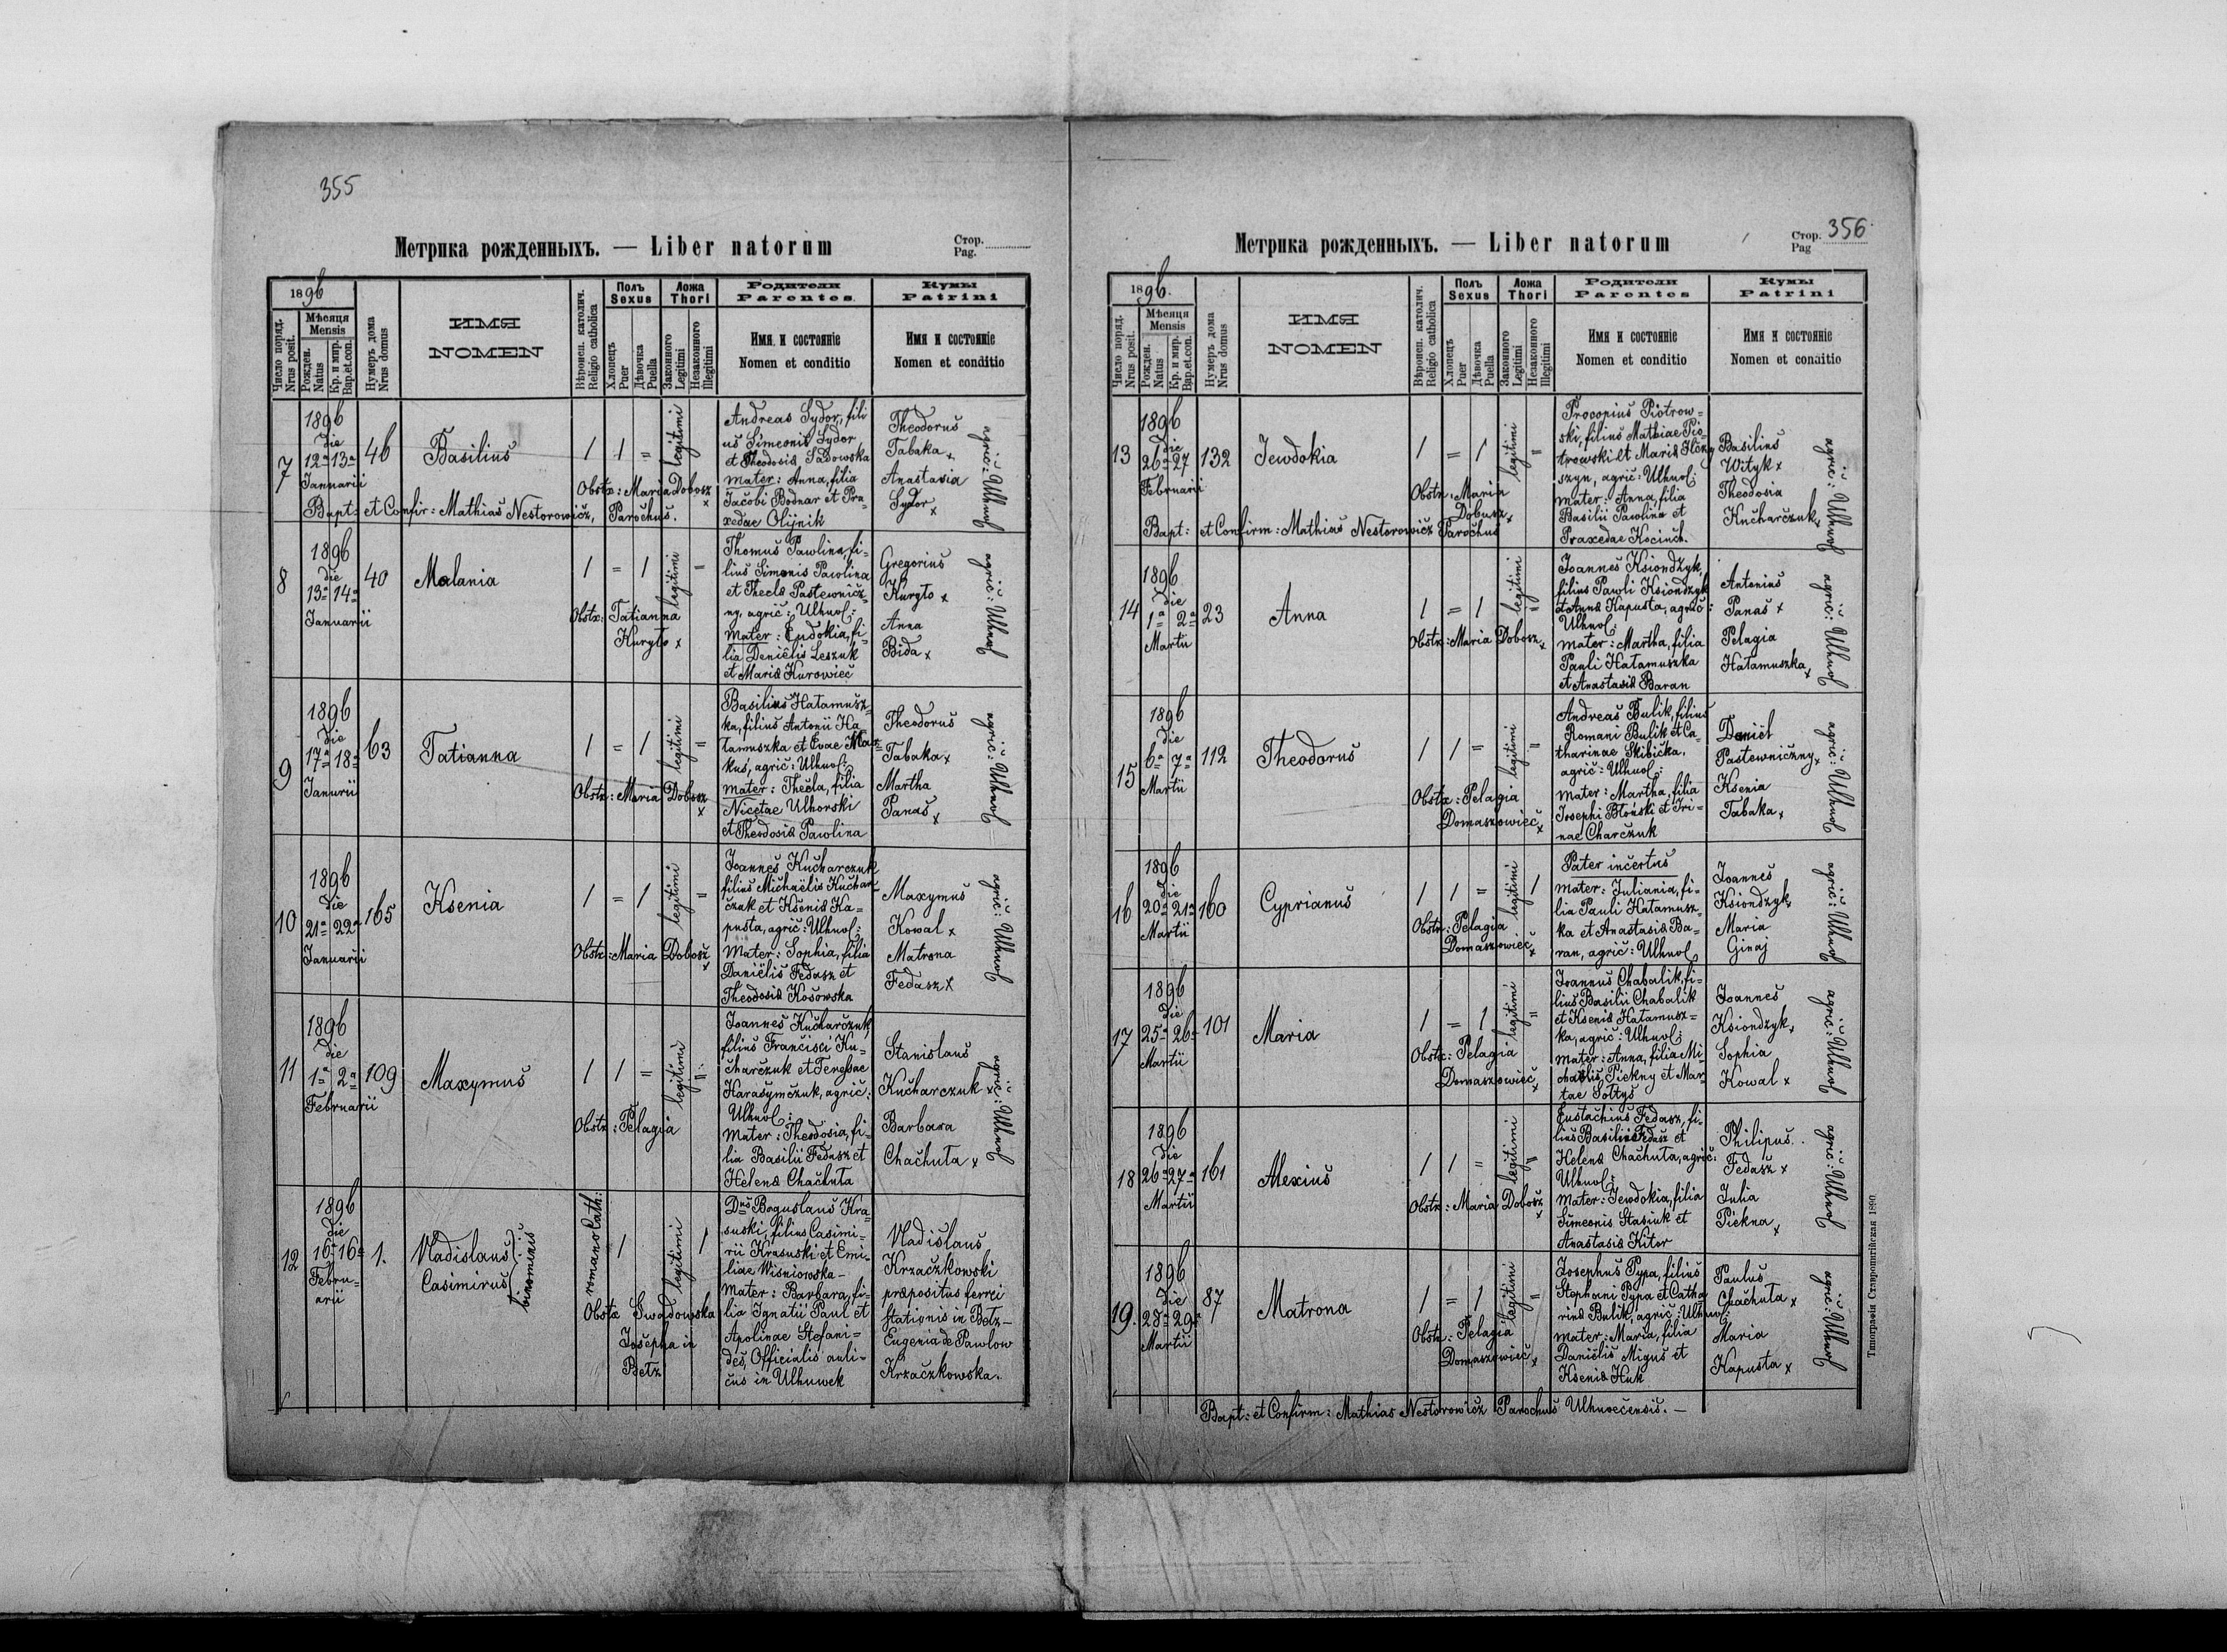 355
Метрика рожденныхъ. — Liber natorum
Стор.
Pag.
1896
Число поряд.
Nrus posit.
Мѣсяця
Mensis
Рожден.
Natus
Кр. и мир.
Bap.et.con.
Нумеръ дома
Nrus domus
ИМЯ
NOMEN
Вѣроисп. католич.
Religio catholica
Полъ
Sexus
Хлопецъ
Puer
Дѣвочка
Puella
Ложа
Thori
Законного
Legitimi
Незаконного
Illegitimi
Родители
Parentes
Имя и состоянiе
Nomen et conditio
Кумы
Patrini
Имя и состоянiе
Nomen et conditio
7
1896
die
12ª 13ª
Januarii
46
Basilius
1 1 =
legitimi
Obstx: Maria Dobosz
x
Andreas Sydor, fili
us Simeonis Sydor
et Theodosia Sadowska
mater: Anna, filia
Jacobi Bodnar et Pra
xedae Olijnik
Theodorus
Tabaka x
Anastasia
Sydor x
agric: Ulhnol
Bapt: et Confir: Mathias Nestorowicz, Parochus.
8
1896
die
13ª 14ª
Januarii
40
Malania
1 = 1
legitimi
=
Obstx: Tatianna
Kuryło x
Thomus Pawlina, fi-
lius Simonis Pawlina
et Thecla Pastewnicz-
ny, agric: Ulhnol:
mater: Eudokia, fi-
lia Denielis Leszuk
et Maria Kurowiec
Gregorius
Kuryło x
Anna
Bida x
agric: Ulhnol
9
1896
die
17ª 18ª
Januarii
63
Tatianna
1 = 1
legitimi
=
Obstx: Maria Dobosz
x
Basilius Hatamusz-
ka, filius Antonii Ha
tamuszka et Evae Mar-
kus, agric: Ulhnol:
mater: Thecla, filia
Nicetae Ulhorski
et Theodosia Pawlina
Theodorus
Tabaka x
Martha
Panas x
agric: Ulhnol
10
1896
die
21ª 22ª
Januarii
165
Ksenia
1 = 1
legitimi
=
Obstx: Maria Dobosz
x
Joannes Kucharczuk
filius Michaëlis Kuchar
czuk et Ksenia Ka-
pusta, agric: Ulhnol:
Mater: Sophia, filia
Daniëlis Fedasz et
Theodosia Kosowska
Maxymus
Kowal x
Matrona
Fedasz x
agric: Ulhnol
11
1896
die
1ª 2ª
Februarii
109
Maxymus
1 1 =
legitimi
=
Obstx: Pelagia
Joannes Kucharczuk
filius Francisci Ku-
charczuk et
Harasymczuk, agric:
Ulhnol:
Mater: Theodosia, fi-
lia Basilii Fedasz et
Helena Chachuta
Stanislaus
Kucharczuk x
Barbara
Chachuta x
agric: Ulhnol
12
1896
die
16ª 16ª
Febru-
arii
1.
Vladislaus
Casimirus
binominis
romano Cath:
1
legitimi
1
Obstx Swadowska
Josepha in
Bełz
Dnus Boguslaus Kra
suski, filius Casimi-
rii Krasuski et Emi-
liae Wisniowska -
Mater: Barbara, fi-
lia Ignatii Paul et
Apolinae Stefani-
des, Officialis auli-
cus in Ulhuwek
Vladislaus
Krzaczkowski
præpositus ferrei
stationis in Bełz -
Eugenia de Pawlow
Krzaczkowska.
Метрика рожденныхъ. — Liber natorum
Стор. 356.
Pag
1896.
Число поряд.
Nrus posit.
Мѣсяця
Mensis
Рожден.
Natus
Кр. и мир.
Bap.et.con.
Нумеръ дома
Nrus domus
ИМЯ
NOMEN
Вѣроисп. католич.
Religio catholica
Полъ
Sexus
Хлопецъ
Puer
Дѣвочка
Puella
Ложа
Thori
Законного
Legitimi
Незаконного
Illegitimi
Родители
Parentes
Имя и состоянiе
Nomen et conditio
Кумы
Patrini
Имя и состоянiе
Nomen et conditio
13
1896
die
26ª 27
Februarii
132
Jewdokia
1 = 1
legitimi
=
Obstx. Maria
Dobusz x
Procopius Piotrow-
ski, filius Mathiae Pio-
trowski et Maria
szyn, agric: Ulhnol:
mater: Anna, filia
Basilii Pawlina et
Praxedae Kociuch.
Basilius
Wityk x
Theodosia
Kucharczuk x
agric: Ulhnol
Bapt: et Confirm: Mathias Nestorowicz Parochus
14
1896
die
1ª 2ª
Martii
23
Anna
1 = 1
legitimi
=
Obstx: Maria Dobosz x
Joannes Ksiondzyk,
filius Pawli Ksiondzyk
et Anna Kapusta, agric:
Ulhnol:
mater: Martha, filia
Pauli Hatamuszka
et Anastasia Baran
Antonius
Panas x
Pelagia
Hatamuszka x
agric: Ulhnol
15
1896
die
6ª 7ª
Martii
112
Theodorus
1 1 =
legitimi
=
Obstx: Pelagia
Domaszowiec x
Andreas Bulik, filius
Romani Bulik et Ca-
tharinae Skibicka.
agric: Ulhnol:
mater: Martha, filia
Josephi Błoński et Iri-
nae Charczuk
Daniël
Pastewniczny x
Ksenia
Tabaka x
agric: Ulhnol
16
1896
die
20ª 21ª
Martii
160
Cyprianus
1 1 =
legitimi
1
Obstx: Pelagia
Domaszowiec x
Pater incertus
mater: Juliania, fi-
lia Pauli Hatamusz-
ka et Anastasia Ba-
ran, agric: Ulhnol
Joannes
Ksiondzyk x
Maria
Ginaj
agric: Ulhnol
17
1896
die
25ª 26ª
Martii
101
Maria
1 = 1
legitimi
=
Obstx: Pelagia
Domaszowiec x
Joannus Chabalik, fi-
lius Basilii Chabalik
et Ksenia Hatamusz-
ka, agric: Ulhnol:
mater: Anna, filia Mi
chaëlis, Piekny et Mar-
tae Sołtys
Joannes
Ksiondzyk x
Sophia
Kowal x
agric: Ulhnol
18
1896
die
26ª 27ª
Martii
161
Alexius
1 1 =
legitimi
=
Obstx: Maria Dobosz x
Eustachius Fedasz, fi-
lius Basilius Fedasz et
Helena Chachuta, agric:
Ulhnol:
Mater: Jewdokia, filia
Simeonis Stasiuk et
Anastasia Kitor
Philipus
Fedasz x
Julia
Piekna
x
agric: Ulhnol
19.
1896
die
28ª 29ª
Martii
87
Matrona
1 = 1
legitimi
=
Obstx: Pelagia
Domaszowiec x
Josephus Pypa, filius
Stephani Pypa et Catha
rina Bulik, agric: Ulhnw:
mater: Maria, filia
Daniëlis Migus et
Ksenia Huk
Paulus
Chachuta x
Maria
Kapusta x
agric: Ulhnol
Bapt: et Confirm: Mathias Nestorowicz Parochus Ulhnovecensis. —
Типографія Ставропигійская 1890.